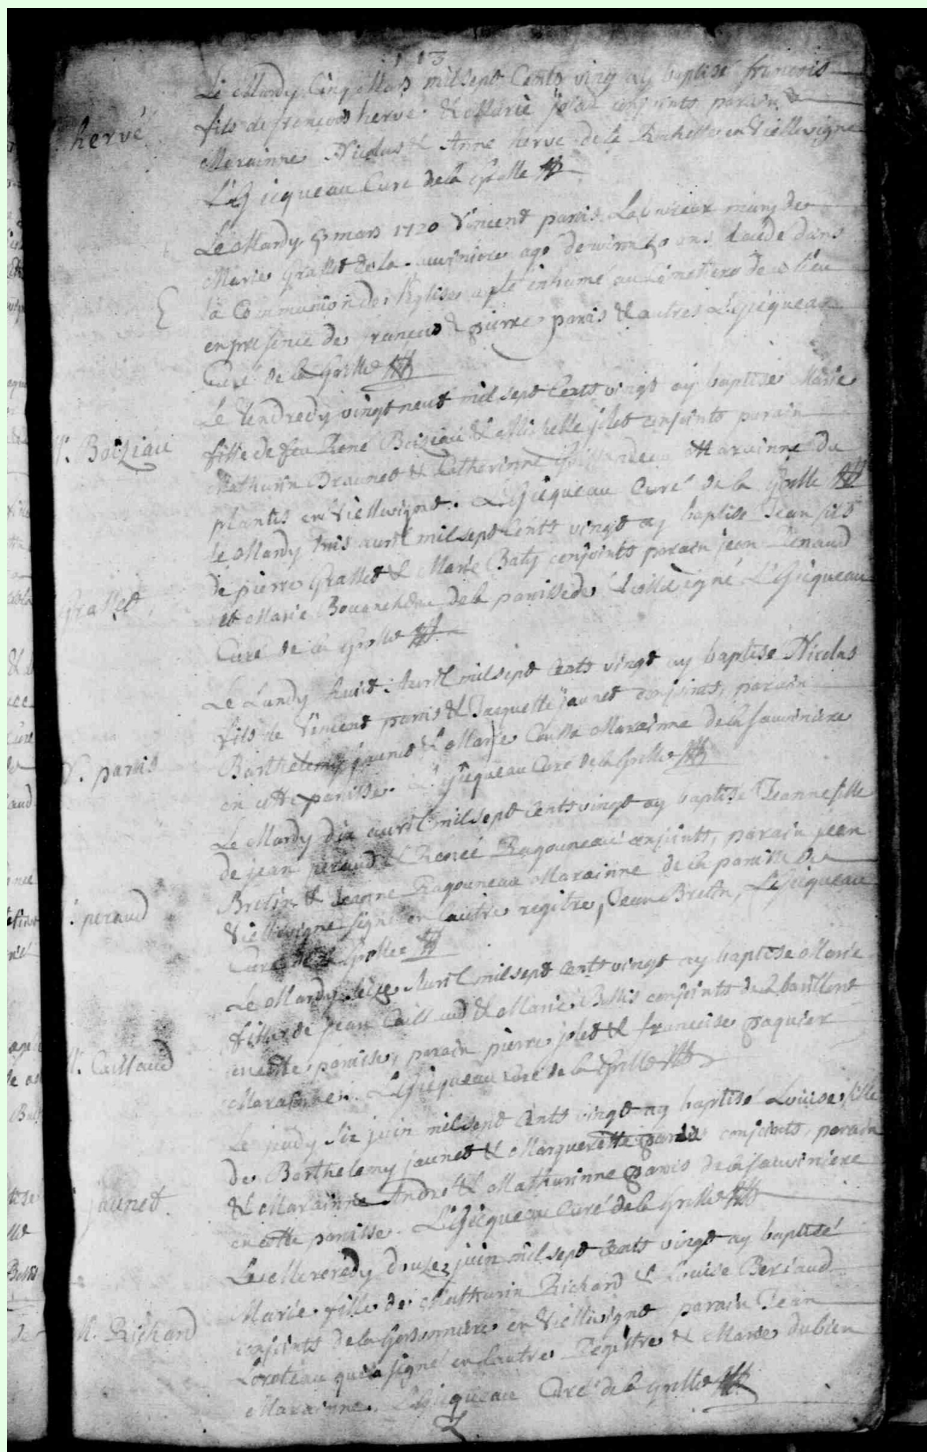 113
Le Mardy Cinq Mars mil sept Cents ving ay baptisé francois
hervé
fils de francois hervé & Marie jolet conjoints parain &
Marainne Nicolas & Anne hervé de la Rochette en Viellevigne
L Gicqueau Curé de la Grolle
Le Mardy mars 1720 Vincent paris mary de
Marie Grasset de la sauviniere agé de ans decede dans
la Communion de l'Eglise a eté inhumé au Cimetiere de ce lieu
en presence de francois & pierre paris & autres L Gicqueau
Curé de la Grolle
Le Vendredy vingt neuf mil sept Cents vingt ay baptisé Marie
Boiziau
fille de feu René Boiziau & Michelle jolet conjoints parain
Mathurin Draunet & Catherinne Marainne du
plantis en Viellevigne. L Gicqueau Curé de la Grolle
le Mardy avril mil sept Cents vingt ay baptisé Jean fils
de pierre Grasset & Marie Baty conjoints parain jean Renaud
Grasset
et Marie de la paroisse de L Gicqueau
Curé de la Grolle
Le Lundy huit Avril mil sept Cents vingt ay baptisé Nicolas
fils de Vincent paris & Jacquette jaunet conjoints, parain
V. paris
Barthelemy jaunet & Marie Marainne de la sauviniere
en cette paroisse. L Gicqueau Curé de la Grolle
Le Mardy dix avril mil sept Cents vingt ay baptisé Jeanne fille
de jean peraud & Renée Ragouneau conjoints, parain jean
peraud
Bretin & Jeanne Ragouneau Marainne de la paroisse de
Viellevigne signé en l'autre registre, Jean Bretin, L Gicqueau
Curé de la Grolle
Le Mardy seize Avril mil sept Cents vingt ay baptisé Marie
fille de jean Caillaud & Marie conjoints de
Caillaud
en cette paroisse, parain pierre jolet & francoise paquier
Marainne. L Gicqueau Curé de la Grolle
Le jeudy six juin mil sept Cents vingt ay baptisé Louise fille
de Barthelemy jaunet & Marguerette conjoints, parain
jaunet.
& Marainne André & Mathurinne paris de la sauviniere
en cette paroisse. L Gicqueau Curé de la Grolle
Le Mercredy douze juin mil sept Cents vingt ay baptisé
Marie fille de Mathurin Richard & Louise Beriaud
M. Richard
conjoints de la en Viellevigne parain Jean
Loroteau qui a signé en l'autre Registre & Marie dubien
Marainne. L Gicqueau Curé de la Grolle